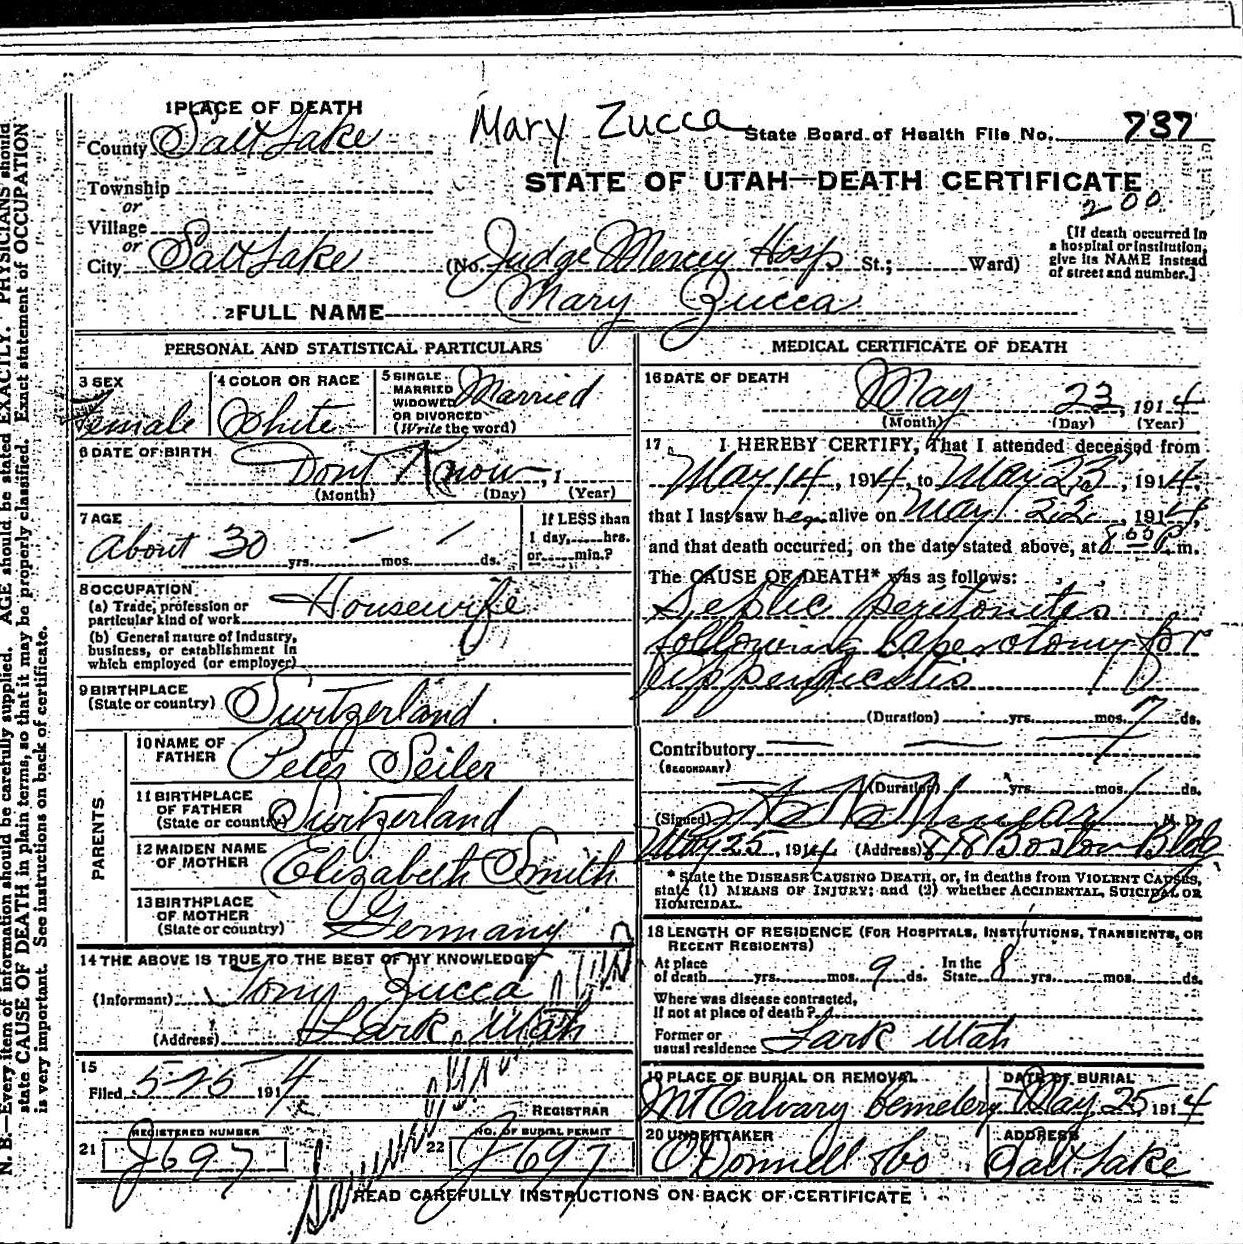 1 PLACE OF DEATH
County Salt Lake
Mary Zucca
State Board of Health File No. 737
Township
or
Village
or
City Salt Lake
STATE OF UTAH—DEATH CERTIFICATE
200
(No. Judge Mercey Hosp St.; Ward)
[If death occurred in
a hospital or institution,
give its NAME instead
of street and number.]
2 FULL NAME Mary Zucca
PERSONAL AND STATISTICAL PARTICULARS
3 SEX
Female
4 COLOR OR RACE
White
5 SINGLE
MARRIED
WIDOWED
OR DIVORCED
(Write the word)
Married
6 DATE OF BIRTH
Dont Know, 1
(Month) (Day) (Year)
7 AGE
About 30 yrs. — mos. / ds.
If LESS than
1 day, hrs.
or min.?
8 OCCUPATION
(a) Trade, profession or
particular kind of work Housewife
(b) General nature of Industry,
business, or establishment in
which employed (or employer)
9 BIRTHPLACE
(State or country) Switzerland
PARENTS
10 NAME OF
FATHER Peter Seiler
11 BIRTHPLACE
OF FATHER
(State or country) Switzerland
12 MAIDEN NAME
OF MOTHER Elizabeth Smith
13 BIRTHPLACE
OF MOTHER
(State or country) Germany
14 THE ABOVE IS TRUE TO THE BEST OF MY KNOWLEDGE
(Informant) Tony Zucca
(Address) Lark, Utah
15
Filed 5-25 1914
REGISTRAR
21 REGISTERED NUMBER J697
22 NO. OF BURIAL PERMIT J697
MEDICAL CERTIFICATE OF DEATH
16 DATE OF DEATH
May 23, 1914
(Month) (Day) (Year)
17 I HEREBY CERTIFY, That I attended deceased from
May 14, 1914, to May 23, 1914,
that I last saw her alive on May 22, 1914,
and that death occurred, on the date stated above, at 8 P. m.
The CAUSE OF DEATH* was as follows:
Septic peritonites
following laperotomy for
appendicitis
(Duration) yrs. mos. 7 ds.
Contributory
(SECONDARY)
(Duration) yrs. mos. ds.
(Signed) M. D.
May 25, 1914 (Address) 818 Boston Bldg
* State the DISEASE CAUSING DEATH, or, in deaths from VIOLENT CAUSES,
state (1) MEANS OF INJURY; and (2) whether ACCIDENTAL, SUICIDAL OR
HOMICIDAL.
18 LENGTH OF RESIDENCE (FOR HOSPITALS, INSTITUTIONS, TRANSIENTS, OR
RECENT RESIDENTS)
At place
of death yrs. mos. 9 ds. In the
State 8 yrs. mos. ds.
Where was disease contracted,
if not at place of death?
Former or
usual residence Lark Utah
19 PLACE OF BURIAL OR REMOVAL
Mt Calvary Cemetery
DATE OF BURIAL
May 25 1914
20 UNDERTAKER
O'Donnell & Co
ADDRESS
Salt Lake
READ CAREFULLY INSTRUCTIONS ON BACK OF CERTIFICATE
N. B.—Every item of information should be carefully supplied. AGE should be stated EXACTLY. PHYSICIANS should
state CAUSE OF DEATH in plain terms, so that it may be properly classified. Exact statement of OCCUPATION
is very important. See instructions on back of certificate.